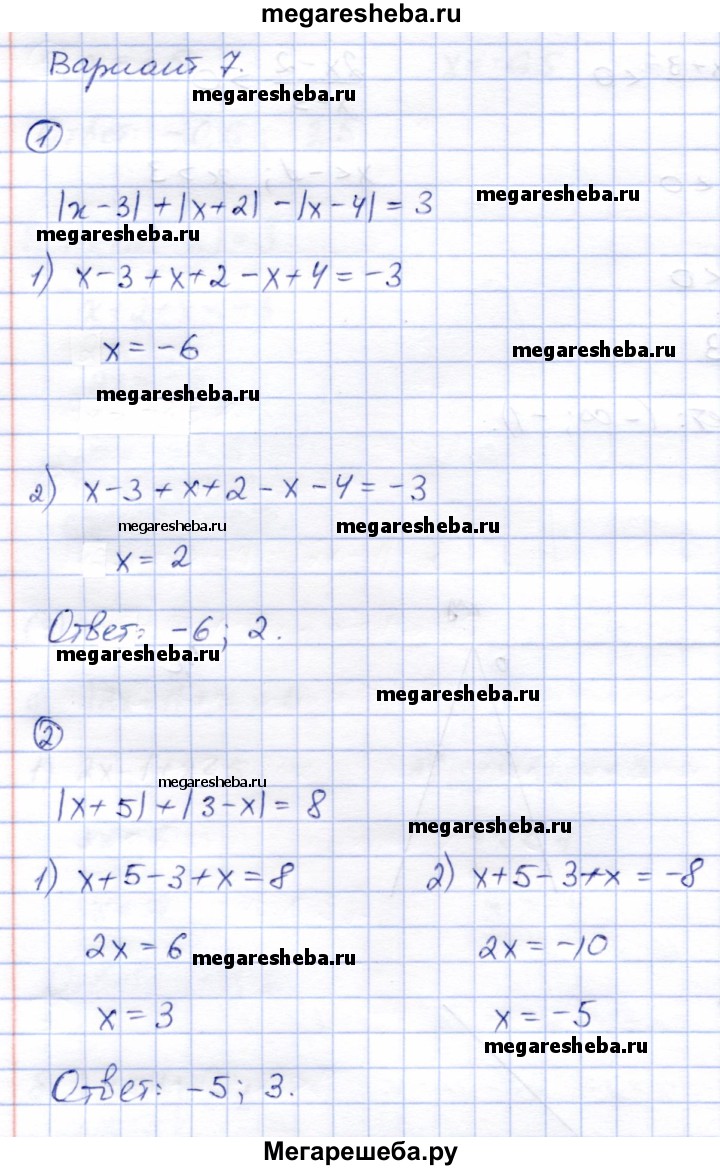 megaresheba.ru
Вариант 7.
megaresheba.ru
1
|x-3|+|x+2|-|x-4|=3
megaresheba.ru
megaresheba.ru
1) x-3+x+2-x+4=-3
x=-6
megaresheba.ru
megaresheba.ru
2) x-3+x+2-x-4=-3
megaresheba.ru
megaresheba.ru
x=2
Ответ: -6; 2.
megaresheba.ru
megaresheba.ru
2
megaresheba.ru
|x+5|+|3-x|=8
megaresheba.ru
1) x+5-3+x=8
2x=6
megaresheba.ru
x=3
2) x+5-3+x=-8
2x=-10
x=-5
megaresheba.ru
Ответ: -5; 3.
Мегарешеба.ру